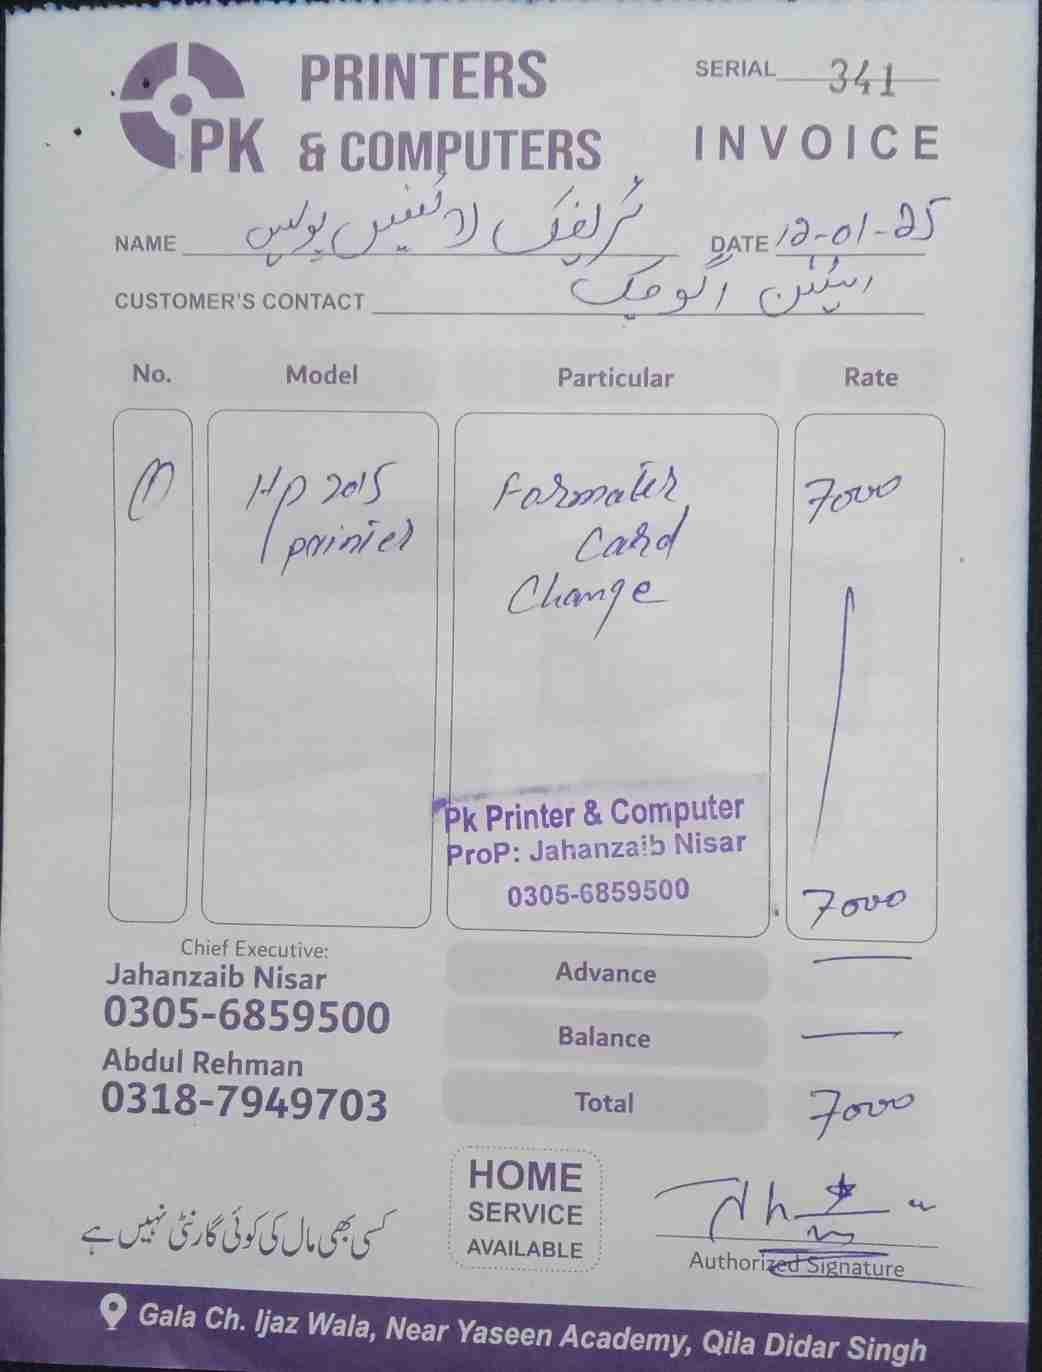 PK PRINTERS & COMPUTERS
SERIAL 341
INVOICE
NAME ٹریفک لائسنس پولیس DATE 12-01-25
CUSTOMER'S CONTACT
No. Model Particular Rate
(1) HP 2015 Formater 7000
printer Card
Change
Pk Printer & Computer
ProP: Jahanzaib Nisar
0305-6859500
7000
Chief Executive:
Jahanzaib Nisar
0305-6859500
Abdul Rehman
0318-7949703
Advance —
Balance —
Total 7000
کسی بھی مال کی کوئی گارنٹی نہیں ہے
HOME
SERVICE
AVAILABLE
Authorized Signature
Gala Ch. Ijaz Wala, Near Yaseen Academy, Qila Didar Singh